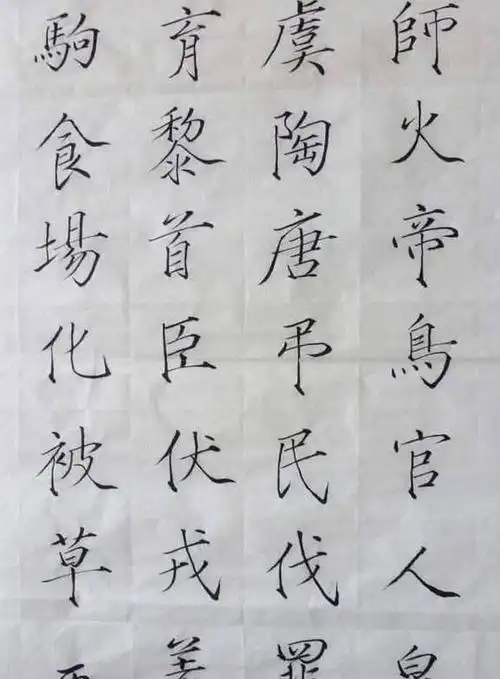 師火帝鳥官人皇
虞陶唐弔民伐罪
育黎首臣伏戎羌
駒食場化被草